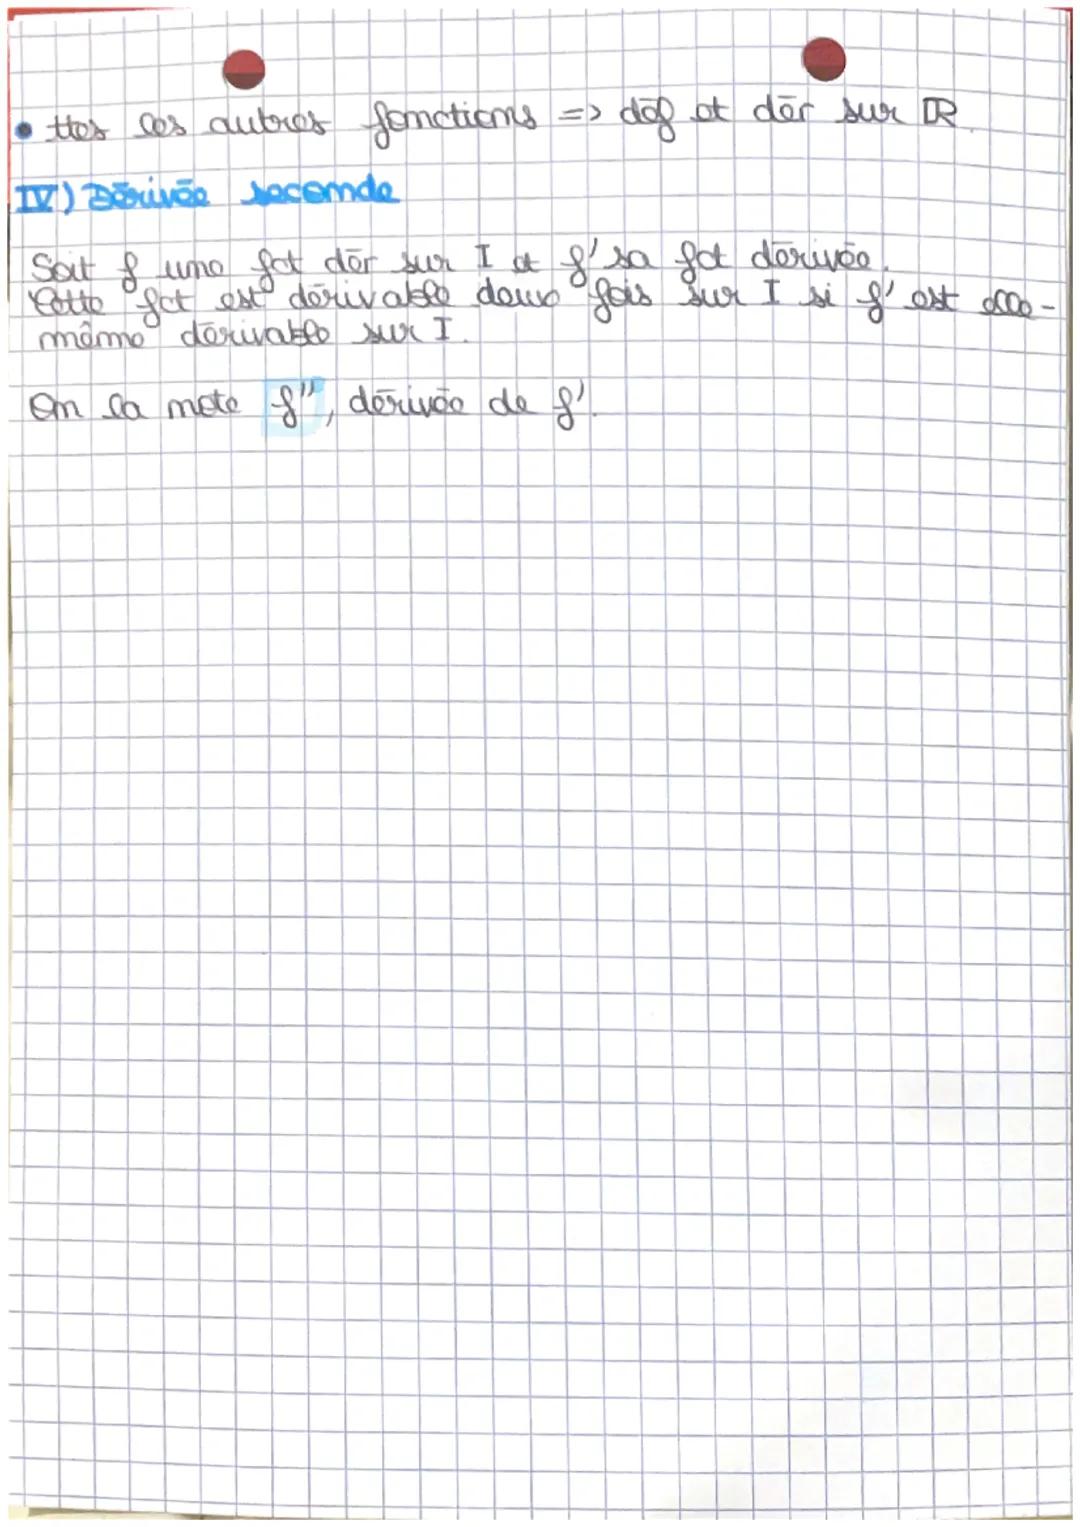 • ttes les autres fonctions => déf et dér sur ℝ.
IV) Dérivée seconde
Soit f une fct dér sur I et f' sa fct dérivée.
Cette fct est dérivable deux fois sur I si f' est elle-
même dérivable sur I.
On la note f", dérivée de f'.